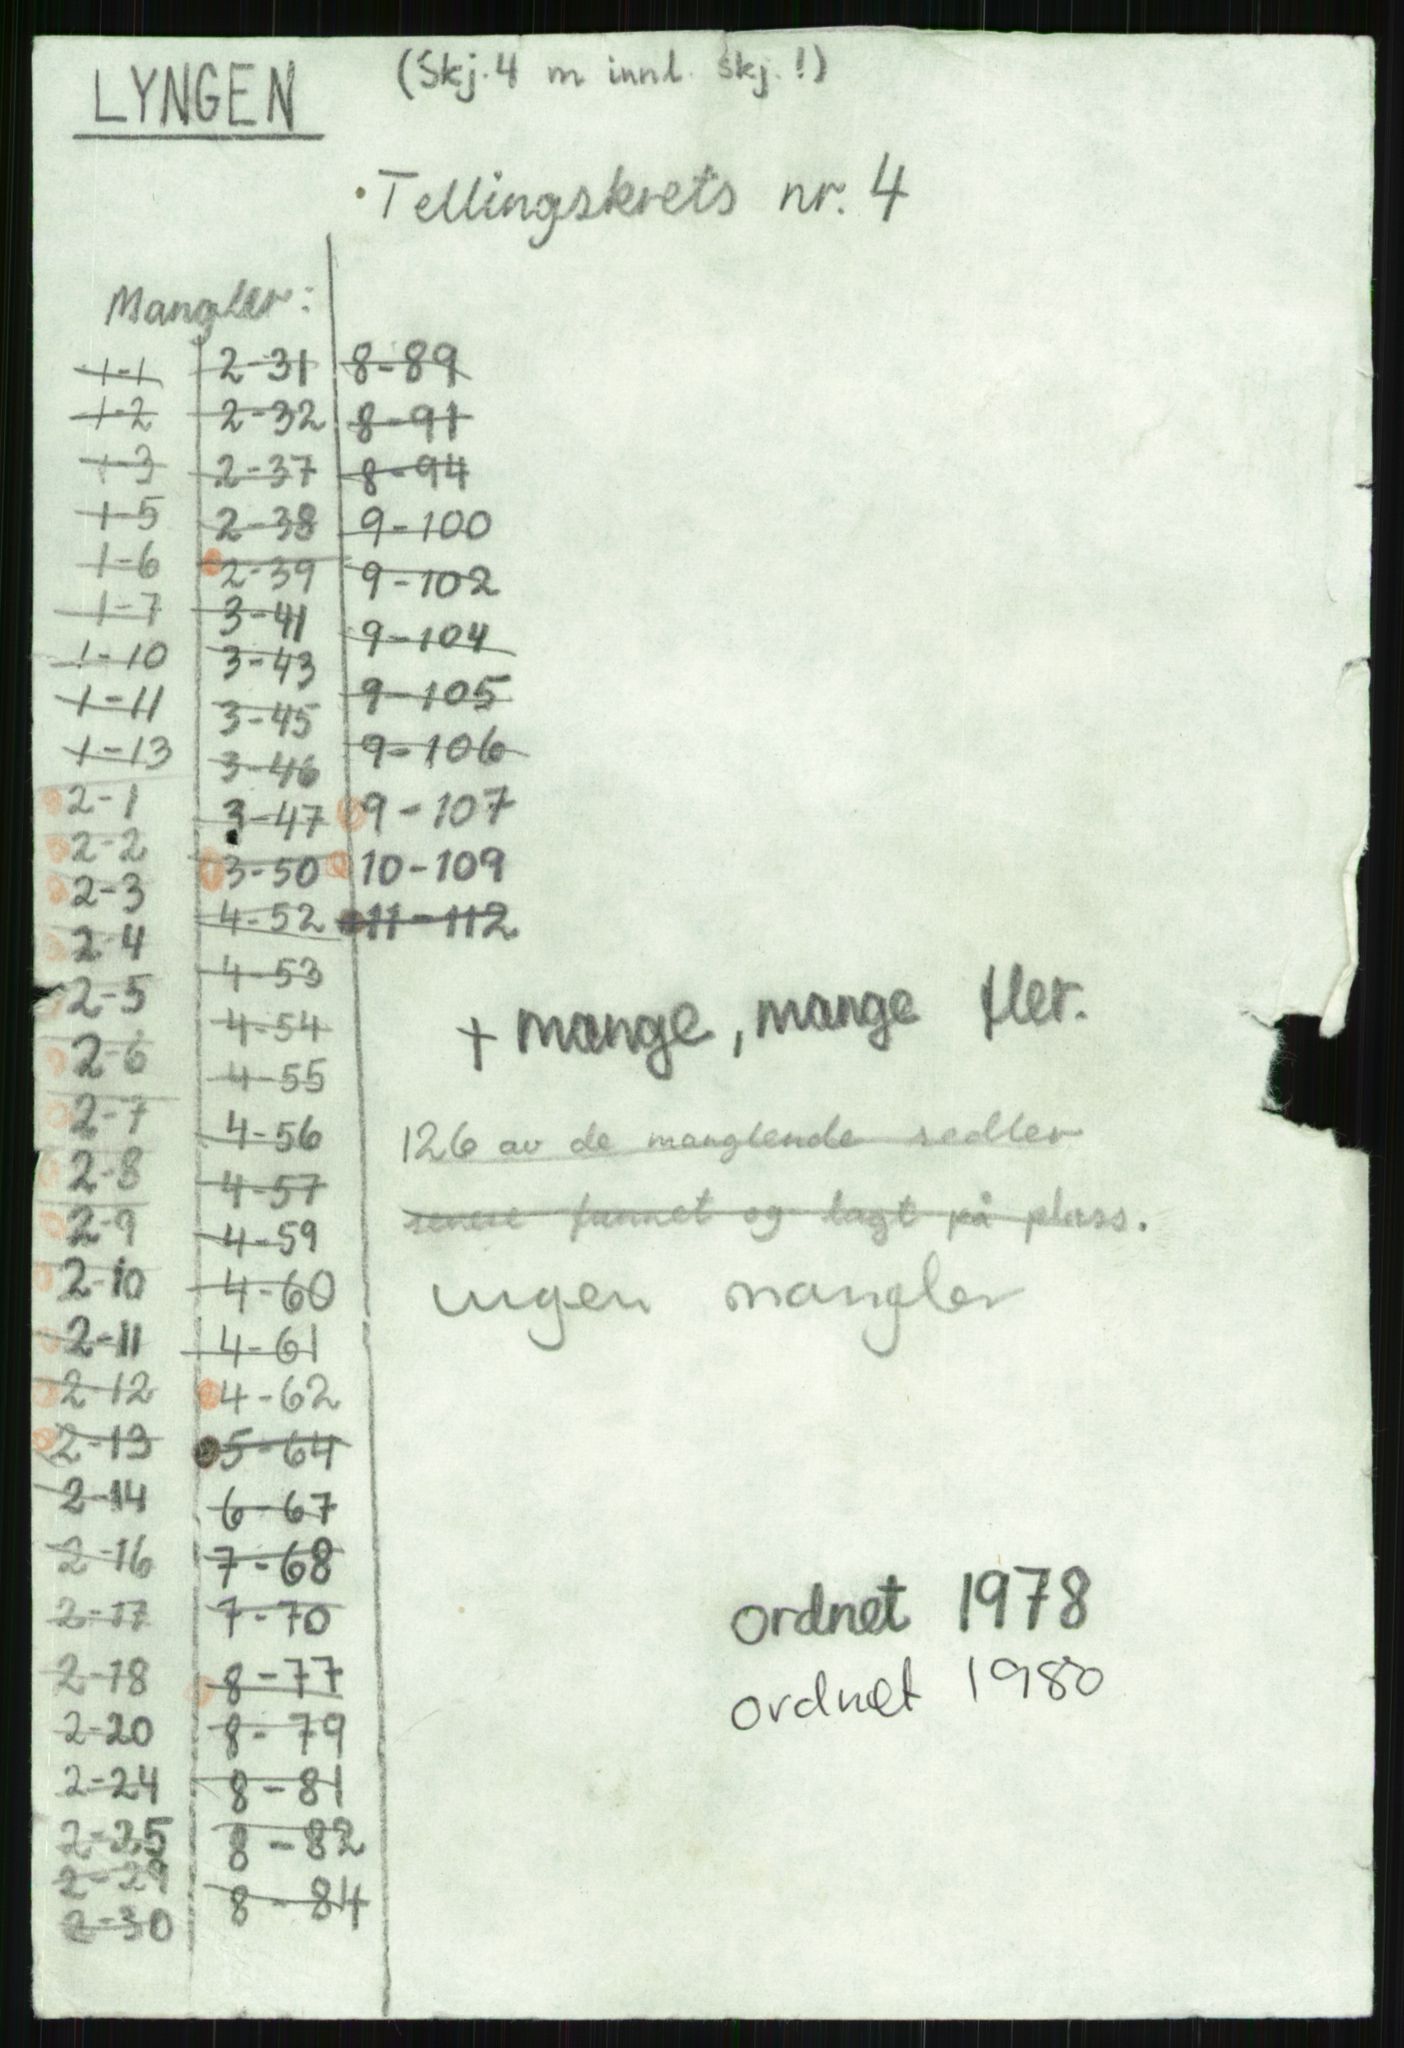 LYNGEN
(Skj. 4 m innl. skj. !)
Tellingskrets nr. 4
Mangler:
1-1
1-2
1-3
1-5
1-6
1-7
1-10
1-11
1-13
2-1
2-2
2-3
2-4
2-5
2-6
2-7
2-8
2-9
2-10
2-11
2-12
2-13
2-14
2-16
2-17
2-18
2-20
2-24
2-25
2-29
2-30
2-31
2-32
2-37
2-38
2-39
3-41
3-43
3-45
3-46
3-47
3-50
4-52
4-53
4-54
4-55
4-56
4-57
4-59
4-60
4-61
4-62
5-64
6-67
7-68
7-70
8-77
8-79
8-81
8-82
8-84
8-89
8-91
8-94
9-100
9-102
9-104
9-105
9-106
9-107
10-109
11-112
+ mange, mange fler.
126 av de manglende sedler
senere funnet og lagt på plass.
ingen mangler
ordnet 1978
ordnet 1980